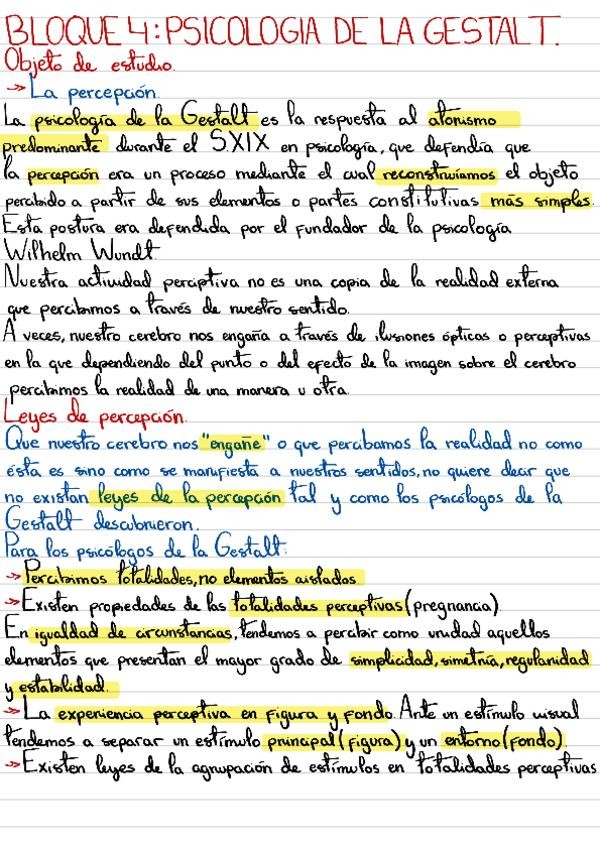 BLOQUE 4: PSICOLOGIA DE LA GESTALT.
Objeto de estudio.
→ La percepción.
La psicología de la Gestalt es la respuesta al atomismo
predominante durante el S.XIX en psicología, que defendía que
la percepción era un proceso mediante el cual reconstruíamos el objeto
percibido a partir de sus elementos o partes constitutivas más simples.
Esta postura era defendida por el fundador de la psicología
Wilhelm Wundt.
Nuestra actividad perceptiva no es una copia de la realidad externa
que percibimos a través de nuestro sentido.
A veces, nuestro cerebro nos engaña a través de ilusiones ópticas o perceptivas
en la que dependiendo del punto o del efecto de la imagen sobre el cerebro
percibimos la realidad de una manera u otra.
Leyes de percepción.
Que nuestro cerebro nos "engañe" o que percibamos la realidad no como
ésta es sino como se manifiesta a nuestros sentidos, no quiere decir que
no existan leyes de la percepción tal y como los psicólogos de la
Gestalt descubrieron.
Para los psicólogos de la Gestalt:
→ Percibimos totalidades, no elementos aislados.
→ Existen propiedades de las totalidades perceptivas (pregnancia).
En igualdad de circunstancias, tendemos a percibir como unidad aquellos
elementos que presentan el mayor grado de simplicidad, simetría, regularidad
y estabilidad.
→ La experiencia perceptiva en figura y fondo. Ante un estímulo visual
tendemos a separar un estímulo principal (figura) y un entorno (fondo).
→ Existen leyes de la agrupación de estímulos en totalidades perceptivas